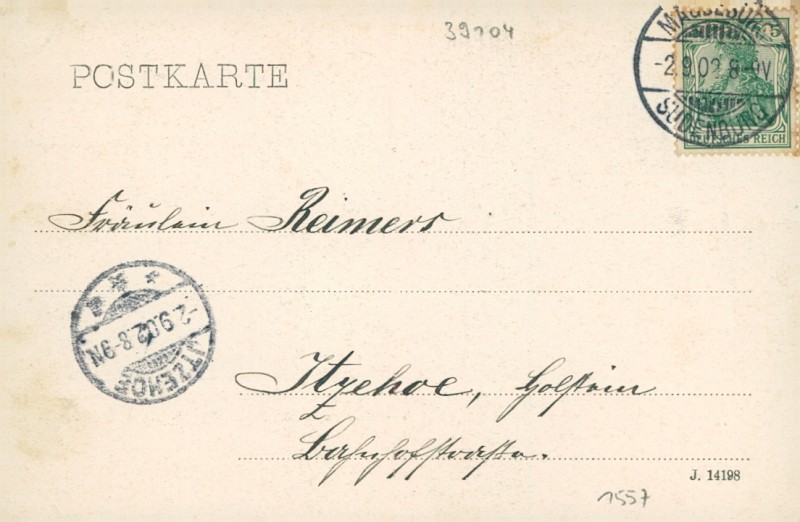 39204
MAGDEBURG
5
-2.9.02.8-9V
SUDENBURG
DEUTSCHES REICH
POSTKARTE
Fräulein Reimers
-2.9.02.8-9N
ITZEHOE
Itzehoe, Holstein
Bahnhofstraße.
J. 14198
1557